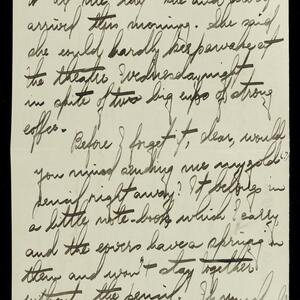 arrived this morning. She said
she could hardly keep awake at
the theatre Wednesday night
in spite of two big cups of strong
coffee.
Before I forget it, dear, would
you mind sending me my gold
pencil right away? It belongs in
a little note-book which I carry
and the covers have a spring in
them and won't stay together
without the pencil.